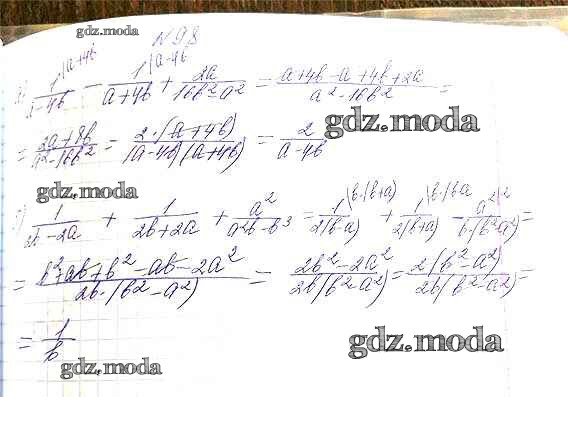 gdz.moda
№98
1|a+4b 1|a-4b
a) 1/(a-4b) - 1/(a+4b) + 2a/(16b²-a²) = (a+4b-a+4b+2a)/(a²-16b²) =
= (2a+8b)/(a²-16b²) = 2·(a+4b)/((a-4b)(a+4b)) = 2/(a-4b)
gdz.moda
gdz.moda
1/(2b-2a) + 1/(2b+2a) + a²/(a²b-b³) = 1|b·(b+a)/(2(b-a)) + 1|b·(b-a)/(2(b+a)) - a²|²/(b·(b²-a²)) =
= (b²+ab+b²-ab-2a²)/(2b·(b²-a²)) = (2b²-2a²)/(2b(b²-a²)) = 2(b²-a²)/(2b(b²-a²)) =
= 1/b
gdz.moda
gdz.moda